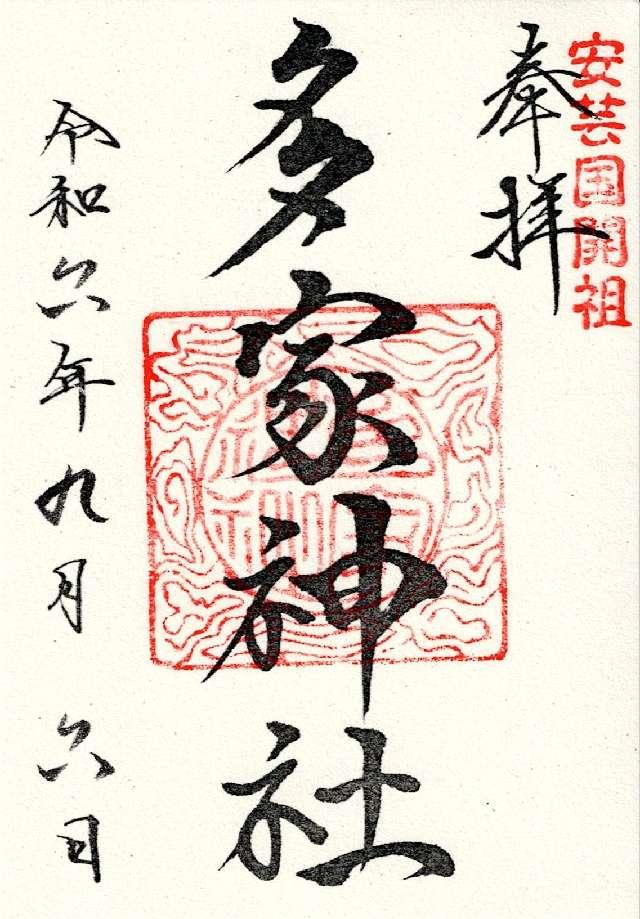 安芸国開祖
奉拝
多家神社
令和六年九月六日